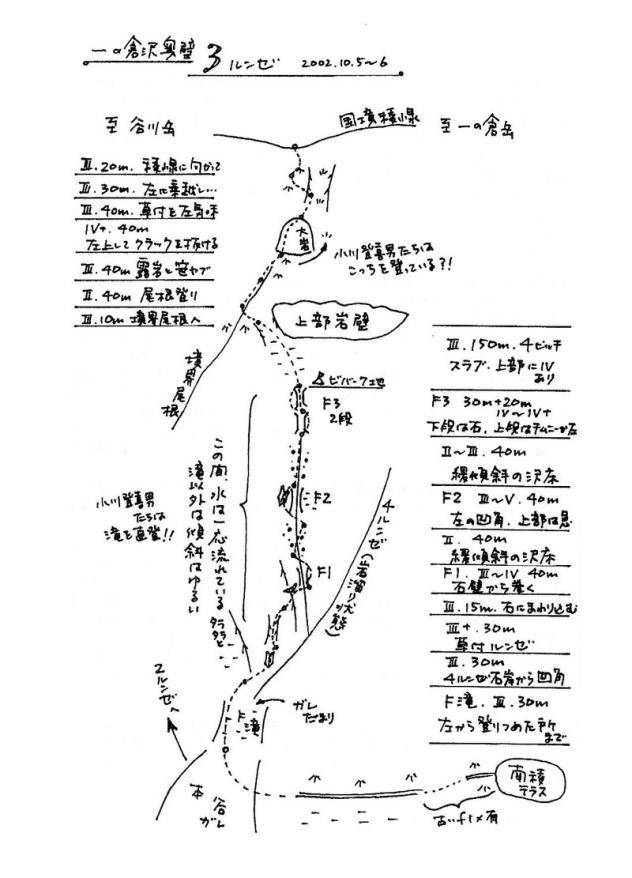 一の倉沢奥壁 3ルンゼ 2002.10.5~6
国境稜線
至 谷川岳
至 一の倉岳
III.20m.稜線に向かって
III.30m.左に乗越し…
III.40m.草付を左気味
IV+.40m
左上してクラックを抜ける
III.40m 露岩と笹ヤブ
II.40m 尾根登り
III.10m 境界尾根へ
大岩
小川登喜男たちは
こっちを登っている?!
上部岩壁
境界尾根
ビバーク地
F3
2段
F2
F1
この間、水は一応流れている
滝以外は傾斜はゆるい
小川登喜男
たちは
滝を直登!!
4ルンゼ
タラタラと
2ルンゼへ
F滝
ガレ
たまり
本谷
ガレ
南稜
テラス
古いfix有
III.150m.4ピッチ
スラブ.上部にIV
あり
F3 30m+20m
IV~IV+
下段は右.上段はチムニーか左
II~III.40m
緩傾斜の沢床
F2 III~V.40m
左の凹角.上部は悪
II.40m
緩傾斜の沢床
F1.III~IV 40m
右壁から巻く
III.15m.右にまわり込む
III+.30m
草付ルンゼ
III.30m
4ルンゼ右岸から凹角
F滝.III.30m
左から登りつめた所
まで